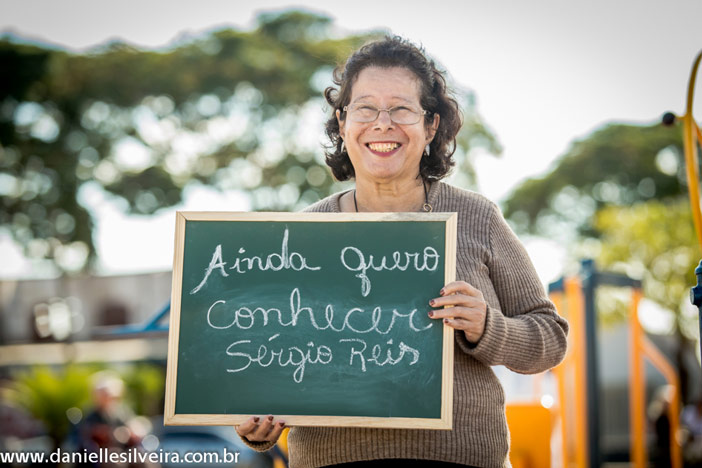 Ainda quero
Conhecer
Sérgio Reis
www.daniellesilveira.com.br